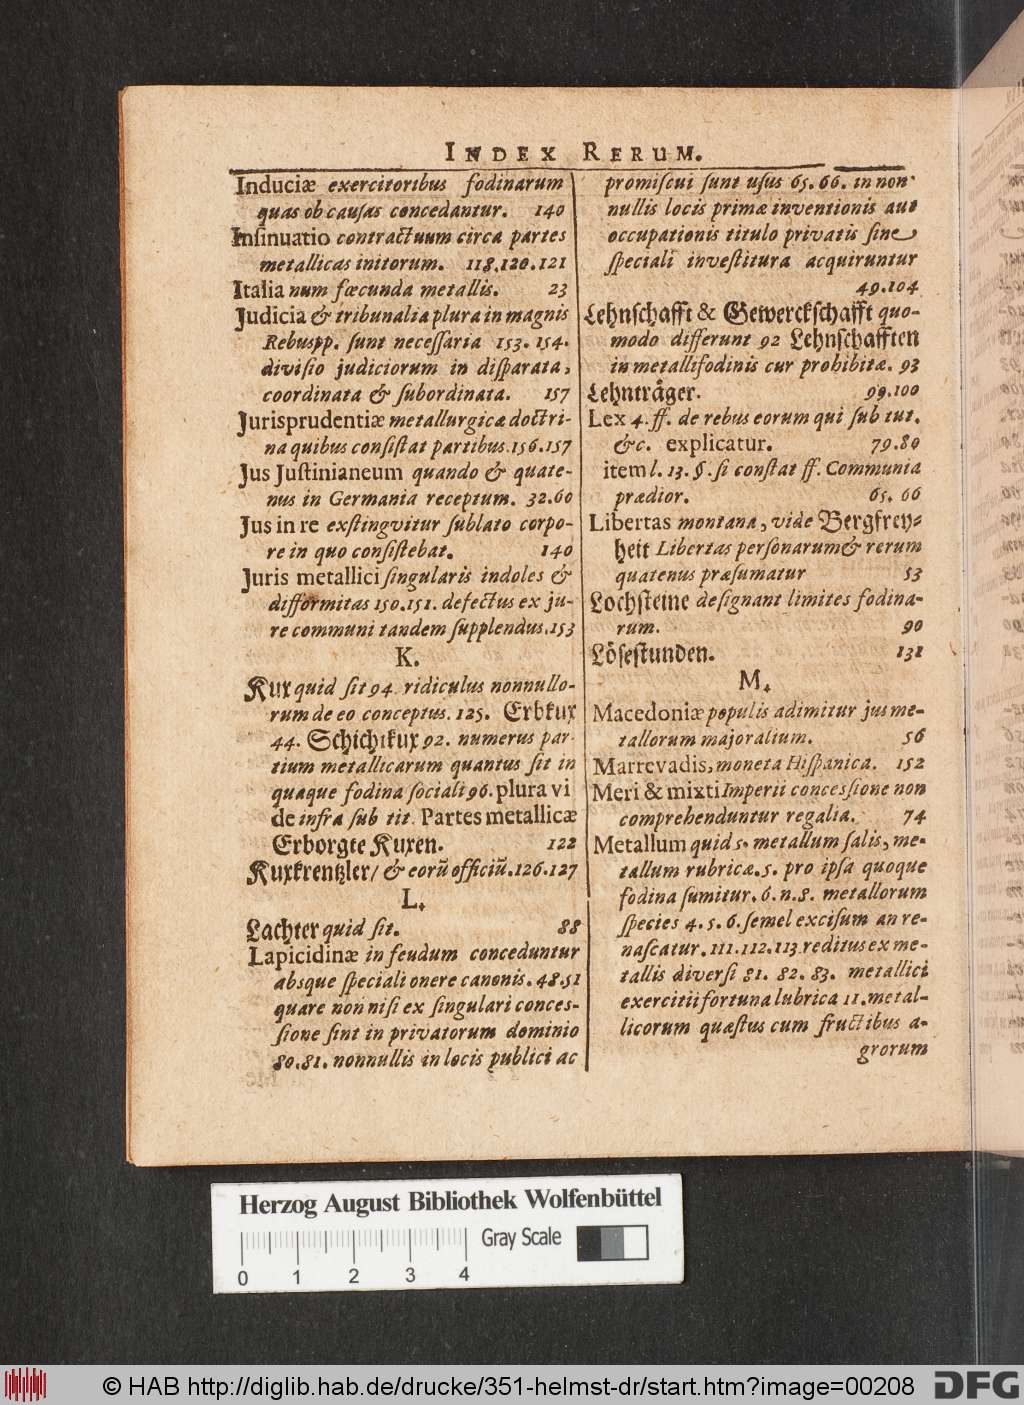 INDEX RERUM.
Induciæ exercitoribus fodinarum
quas ob cauſas concedantur. 140
Inſinuatio contractuum circa partes
metallicas initorum. 118.120.121
Italia num fœcunda metallis. 23
Judicia & tribunalia plura in magnis
Rebuspp. ſunt neceſſaria 153. 154.
diviſio judiciorum in diſparata,
coordinata & ſubordinata. 157
Jurisprudentiæ metallurgicæ doctri-
na quibus conſiſtat partibus. 156.157
Jus Juſtinianeum quando & quate-
nus in Germania receptum. 32.60
Jus in re exſtingvitur ſublato corpo-
re in quo conſiſtebat. 140
Juris metallici ſingularis indoles &
difformitas 150.151. defectus ex ju-
re communi tandem ſupplendus. 153
K.
Kux quid ſit 94. ridiculus nonnullo-
rum de eo conceptus. 125. Erbkux
44. Schichtkux 92. numerus par-
tium metallicarum quantus ſit in
quaque fodina ſociali 96. plura vi
de infra ſub tit. Partes metallicæ
Erborgte Kuxen. 122
Kuxkrentzler/ & eorũ officiũ. 126.127
L.
Lachter quid ſit. 88
Lapicidinæ in feudum conceduntur
absque ſpeciali onere canonis. 48.51
quare non niſi ex ſingulari conces-
ſione ſint in privatorum dominio
80.81. nonnullis in locis publici ac
promiſcui ſunt uſus 65. 66. in non-
nullis locis primæ inventionis aut
occupationis titulo privatis ſine
ſpeciali inveſtitura acquiruntur
49.104
Lehnſchafft & Gewerckſchafft quo-
modo differunt 92 Lehnſchafften
in metallifodinis cur prohibitæ. 93
Lehnträger. 99.100
Lex 4. ff. de rebus eorum qui ſub tut.
&c. explicatur. 79.80
item l. 13. §. ſi conſtat ff. Communia
prædior. 65. 66
Libertas montana, vide Bergfrey-
heit Libertas perſonarum & rerum
quatenus præſumatur 53
Lochſteine deſignant limites fodina-
rum. 90
Löſeſtunden. 131
M.
Macedoniæ populis adimitur jus me-
tallorum majoralium. 56
Marrevadis, moneta Hiſpanica. 152
Meri & mixti Imperii conceſſione non
comprehenduntur regalia. 74
Metallum quid 5. metallum ſalis, me-
tallum rubricæ. 5. pro ipſa quoque
fodina ſumitur. 6. n. 8. metallorum
ſpecies 4. 5. 6. ſemel exciſum an re-
naſcatur. 111.112.113 reditus ex me-
tallis diverſi 81. 82. 83. metallici
exercitii fortuna lubrica 11. metal-
licorum quæſtus cum fructibus a-
grorum
Herzog August Bibliothek Wolfenbüttel
Gray Scale
0 1 2 3 4
© HAB http://diglib.hab.de/drucke/351-helmst-dr/start.htm?image=00208
DFG